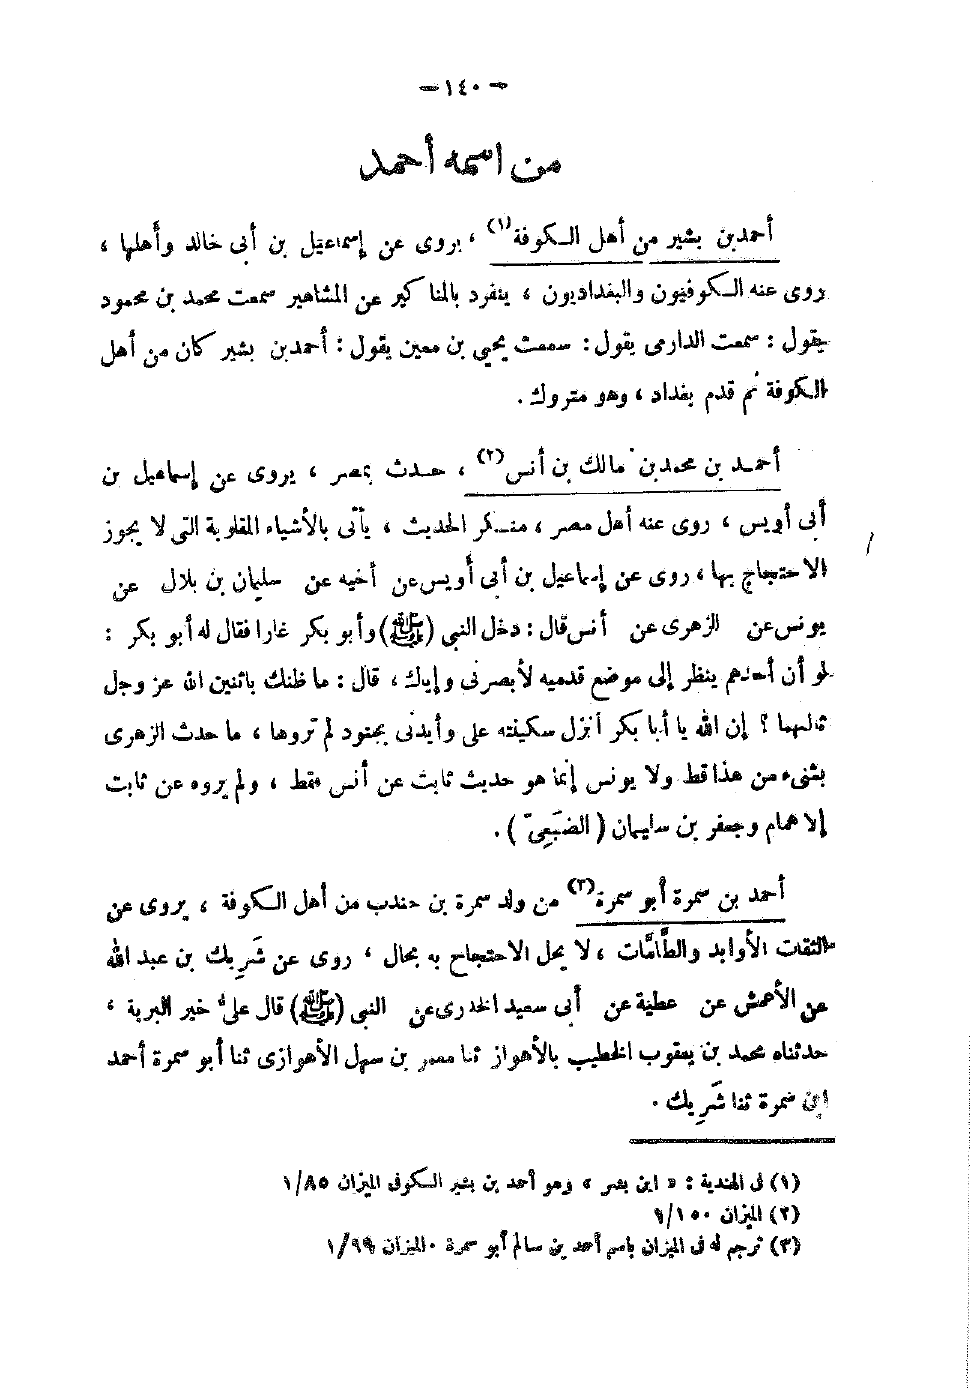 — ١٤٠ —
من اسمه أحمد
أحمد بن بشير من أهل الكوفة (١) ، يروى عن إسماعيل بن أبى خالد وأهلها ،
روى عنه الكوفيون والبغداديون ، ينفرد بالمناكير عن المشاهير سمعت محمد بن محمود
يقول : سمعت الدارمى يقول : سمعت يحيى بن معين يقول : أحمد بن بشير كان من أهل
الكوفة ثم قدم بغداد ، وهو متروك .
أحمد بن محمد بن مالك بن أنس (٢) ، حدث بمصر ، يروى عن إسماعيل بن
أبى أويس ، روى عنه أهل مصر ، منكر الحديث ، يأتى بالأشياء المقلوبة التى لا يجوز
الاحتجاج بها ، روى عن إسماعيل بن أبى أويس عن أخيه عن سليمان بن بلال عن
يونس عن الزهرى عن أنس قال : دخل النبى (ﷺ) وأبو بكر غارا فقال له أبو بكر :
لو أن أحدهم ينظر إلى موضع قدميه لأبصرنى وإياك ، قال : ما ظنك باثنين الله عز وجل
ثالثهما ؟ إن الله يا أبا بكر أنزل سكينته على وأيدنى بجنود لم تروها ، ما حدث الزهرى
بشىء من هذا قط ولا يونس إنما هو حديث ثابت عن أنس فقط ، ولم يروه عن ثابت
إلا همام وجعفر بن سليمان ( الضبَعِىّ ) .
أحمد بن سمرة أبو سمرة (٣) من ولد سمرة بن جندب من أهل الكوفة ، يروى عن
الثقات الأوابد والطَّامَّات ، لا يحل الاحتجاج به بحال ، روى عن شَرِيك بن عبد الله
عن الأعمش عن عطية عن أبى سعيد الخدرى عن النبى (ﷺ) قال علىٌّ خير البرية ،
حدثناه محمد بن يعقوب الخطيب بالأهواز ثنا معمر بن سهل الأهوازى ثنا أبو سمرة أحمد
ابن ضمرة ثنا شَرِيك .
(١) فى الهندية : « ابن بشر » وهو أحمد بن بشير الكوفى الميزان ١/٨٥
(٢) الميزان ١/١٥٠
(٣) ترجم له فى الميزان باسم أحمد بن سالم أبو سمرة . الميزان ١/٩٩